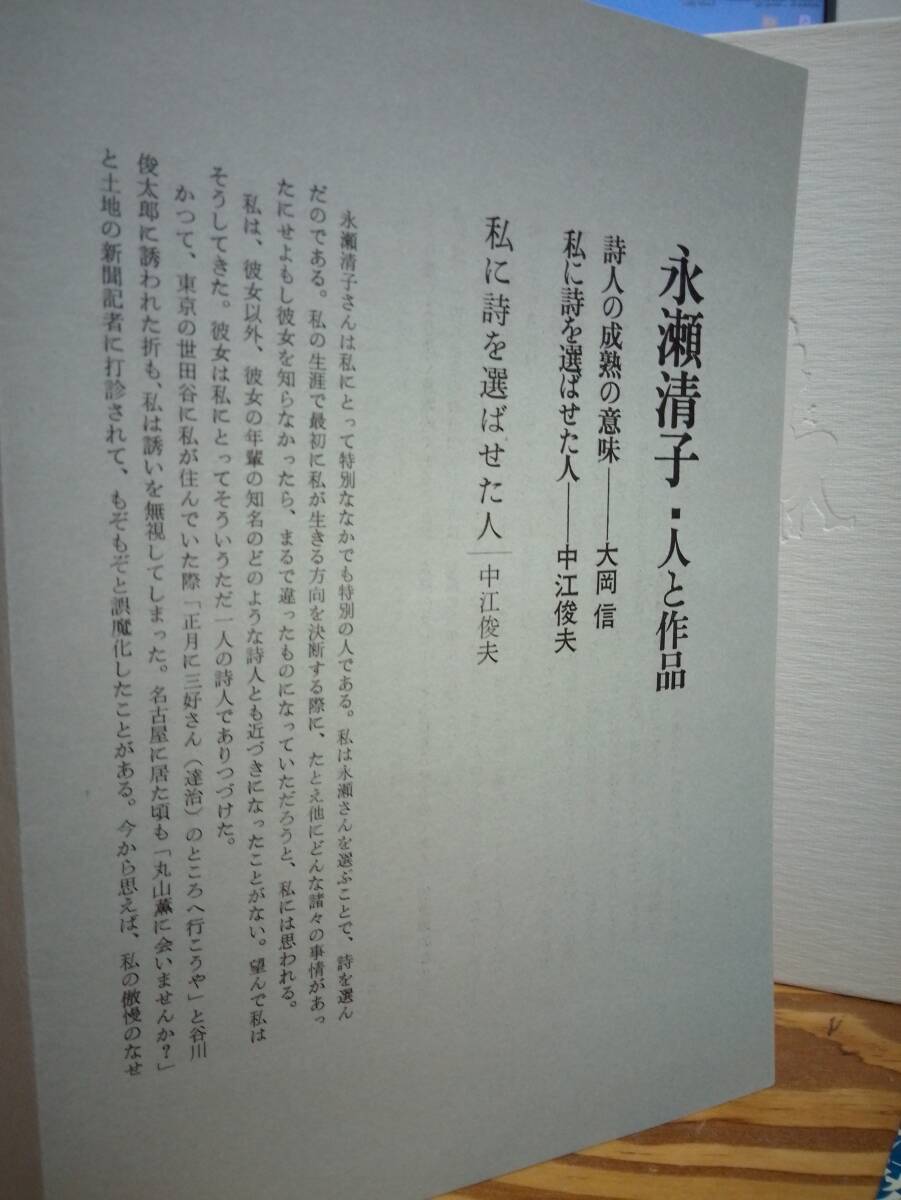 永瀬清子・人と作品
詩人の成熟の意味——大岡 信
私に詩を選ばせた人——中江俊夫
私に詩を選ばせた人—中江俊夫
永瀬清子さんは私にとって特別ななかでも特別の人である。私は永瀬さんを選ぶことで、詩を選ん
だのである。私の生涯で最初に私が生きる方向を決断する際に、たとえ他にどんな諸々の事情があっ
たにせよもし彼女を知らなかったら、まるで違ったものになっていただろうと、私には思われる。
私は、彼女以外、彼女の年輩の知名のどのような詩人とも近づきになったことがない。望んで私は
そうしてきた。彼女は私にとってそういうただ一人の詩人でありつづけた。
かつて、東京の世田谷に私が住んでいた際「正月に三好さん（達治）のところへ行こうや」と谷川
俊太郎に誘われた折も、私は誘いを無視してしまった。名古屋に居た頃も「丸山薫に会いませんか？」
と土地の新聞記者に打診されて、もぞもぞと誤魔化したことがある。今から思えば、私の傲慢のなせ